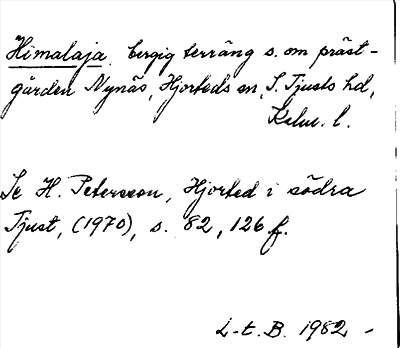 Himalaja bergig terräng s. om präst-
gården Nynäs, Hjorteds sn, S. Tjusts hd,
Kalm. l.
Se H. Petersson, Hjorted i södra
Tjust, (1970), s. 82, 126 f.
L-t. B. 1982 -